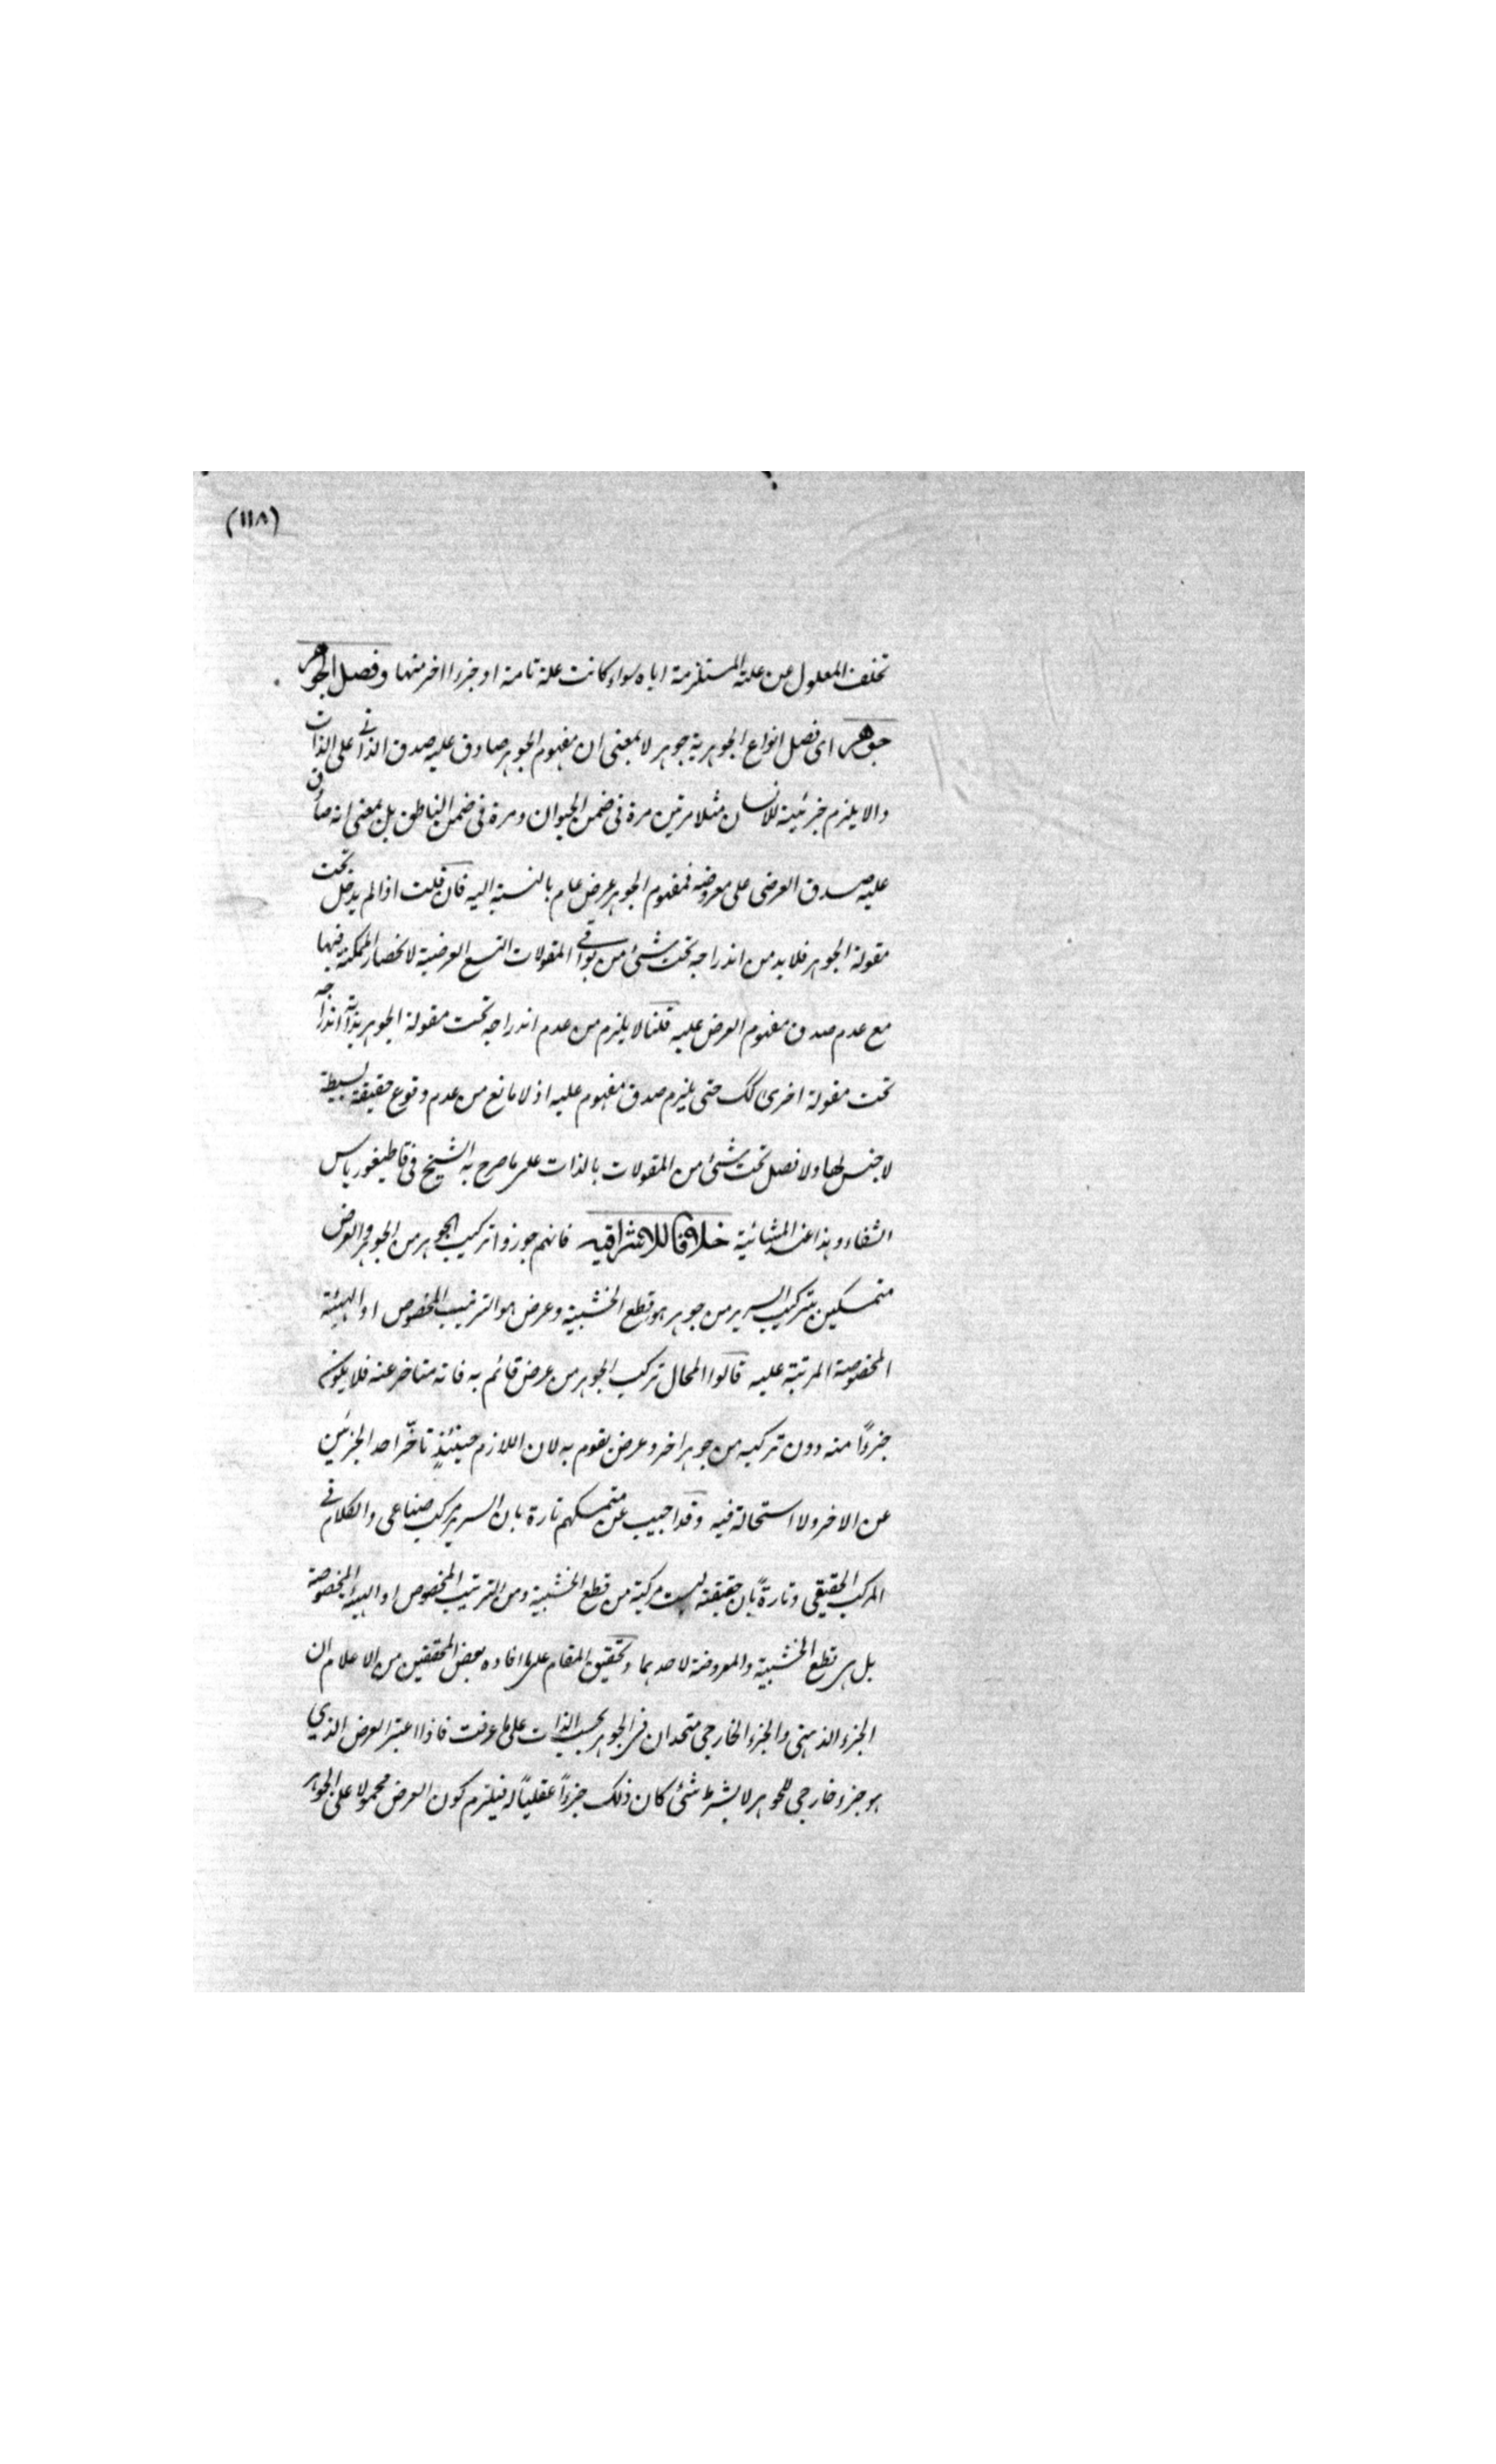 (١١٨)
تخلف المعلول عن علته المستلزمة اياه سواء كانت علة تامة او جزءا اخر منها وفصل الجوهر
جوهر اى فصل انواع الجوهرية جوهر لا بمعنى ان مفهوم الجوهر صادق عليه صدق الذاتي على الذات
والا يلزم جزئيته للانسان مثلا مرتين مرة فى ضمن الحيوان ومرة فى ضمن الناطق بل بمعنى انه صادق
عليه صدق العرضى على معروضه فمفهوم الجوهر عرض عام بالنسبة اليه فان قلت اذا لم يدخل تحت
مقولة الجوهر فلا بد من اندراجه تحت شئ من بواقي المقولات التسع العرضية لانحصار الممكنة فيها
مع عدم صدق مفهوم العرض عليه قلنا لا يلزم من عدم اندراجه تحت مقولة الجوهر بذاته اندراجه
تحت مقولة اخرى كك حتى يلزم صدق مفهوم عليه اذ لا مانع من عدم وقوع حقيقة بسيطة
لا جنس لها ولا فصل تحت شئ من المقولات بالذات على ما صرح به الشيخ فى قاطيغورياس
الشفاء وهذا عند المشائية خلافا للاشراقيه فانهم جوزوا تركيب الجوهر من الجوهر والعرض
متمسكين بتركيب السرير من جوهر هو قطع الخشبية وعرض هو الترتيب المخصوص او الهيئة
المخصوصة المرتبة عليه قالوا المحال تركيب الجوهر من عرض قائم به فانه متاخر عنه فلا يكون
جزءًا منه دون تركبه من جوهر اخر وعرض يقوم به لان اللازم حينئذٍ تاخّر احد الجزئين
عن الاخر ولا استحالة فيه وقد اجيب عن متمسكهم تارة بان السرير مركب صناعى والكلام في
المركب الحقيقى وتارةً بان حقيقته ليست مركبة من قطع الخشبية ومن الترتيب المخصوص او الهيئة المخصوصة
بل هى قطع الخشبية والمعروضة لاحدهما وتحقيق المقام على ما افاده بعض المحققين من الاعلام ان
الجزء الذهنى والجزء الخارجى متحدان فى الجوهر بحسب الذات على ما عرفت فاذا اعتبر العرض الذي
هو جزء خارجى للجوهر لا بشرط شئ كان ذلك جزءاً عقلياً له فيلزم كون العرض محمولا على الجوهر